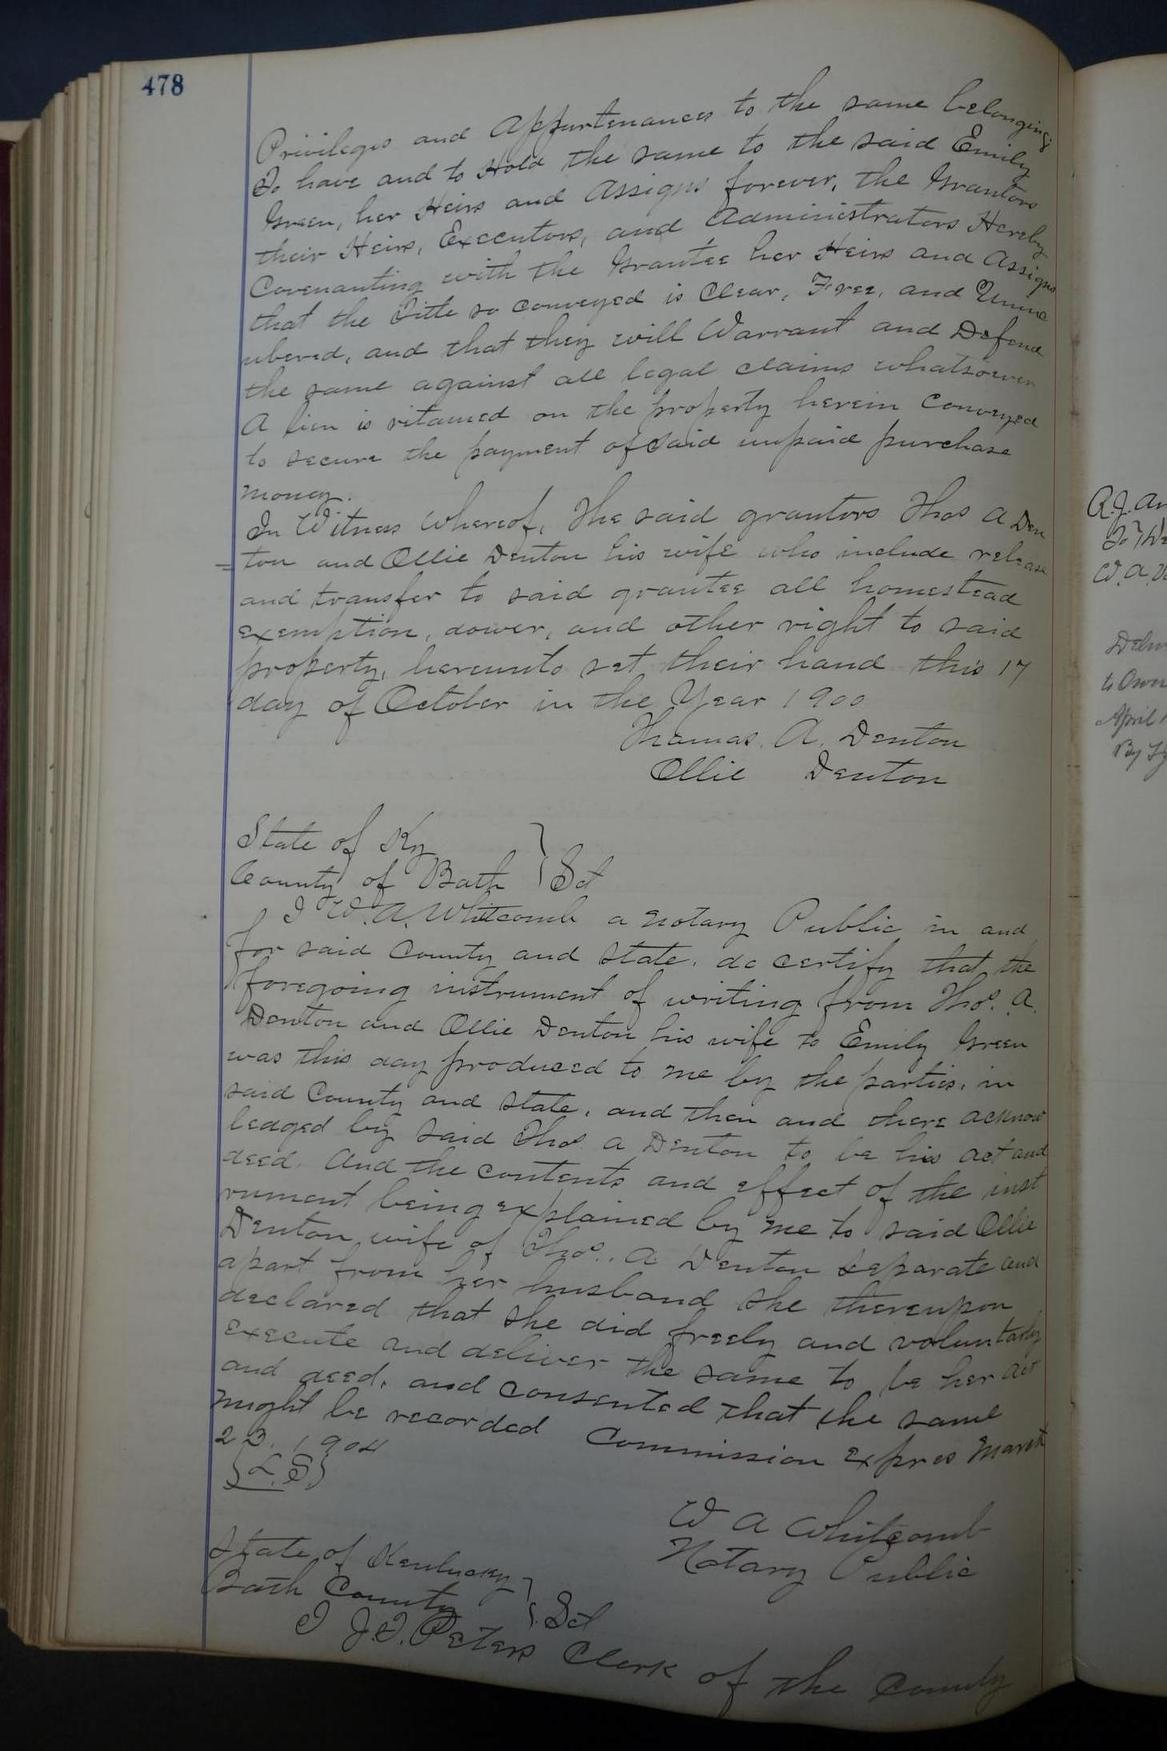 478
Privileges and Appurtenances to the same belonging
To have and to Hold the same to the said Emily
Green, her Heirs and Assigns forever, the Grantors
their Heirs, Executors, and Administrators Hereby
Covenanting with the Grantee her Heirs and Assigns
that the Title so conveyed is Clear, Free, and Uninc
umbered, and that they will Warrant and Defend
the same against all legal claims whatsoever
A lien is retained on the property herein conveyed
to secure the payment of said unpaid purchase
money.
In Witness Whereof, The said grantors Thos A Den
=ton and Ollie Denton his wife who include release
and transfer to said grantee all homestead
exemption, dower, and other right to said
property, hereunto set their hand this 17
day of October in the Year 1900
Thamas. A. Denton
Ollie Denton
State of Ky
County of Bath } Sct
I W. A. Whitcomb a notary Public in and
for said County and state, do certify that the
foregoing instrument of writing from Thos. A.
Denton and Ollie Denton his wife to Emily Green
was this day produced to me by the parties, in
said County and state, and then and there acknow
ledged by said Thos a Denton to be his act and
deed. And the contents and effect of the inst
rument being explained by me to said Ollie
Denton wife of Thos. A Denton separate and
apart from her husband she thereupon
declared that she did freely and voluntarily
execute and deliver the same to be her act
and deed, and consented that the same
might be recorded Commission expres March
23, 1904
{L.S}
W A Whitcomb
Notary Public
State of Kentucky
Bath County } Sct
I J.T. Peters Clerk of the County
R.J. an
To
W. A.
to Owne
April 1
By